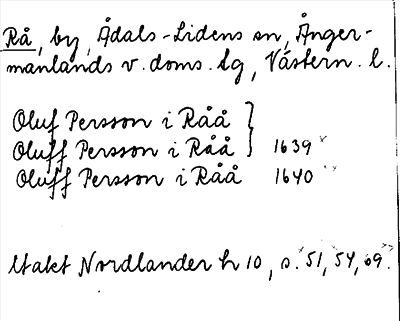 Rå, by, Ådals-Lidens sn, Ånger-
manlands v. doms. tg, Västern. l.
Oluf Persson i Råå
Oluff Persson i Råå } 1639 x
Oluff Persson i Råå 1640 xx
Utakt Nordlander h 10, s. x 51, x 54, 69. xx